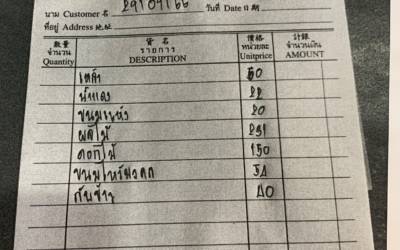 นาม Customer 名 29/09/66 วันที่ Date 日期
ที่อยู่ Address 地址
數量 จำนวน Quantity
貨名 รายการ DESCRIPTION
價格 หน่วยละ Unitprice
計銀 จำนวนเงิน AMOUNT
เหล้า 50
น้ำแดง 22
ขนมแห้ง 20
ผลไม้ 231
ดอกไม้ 150
ขนมไหว้มงคล 54
กับข้าว 40